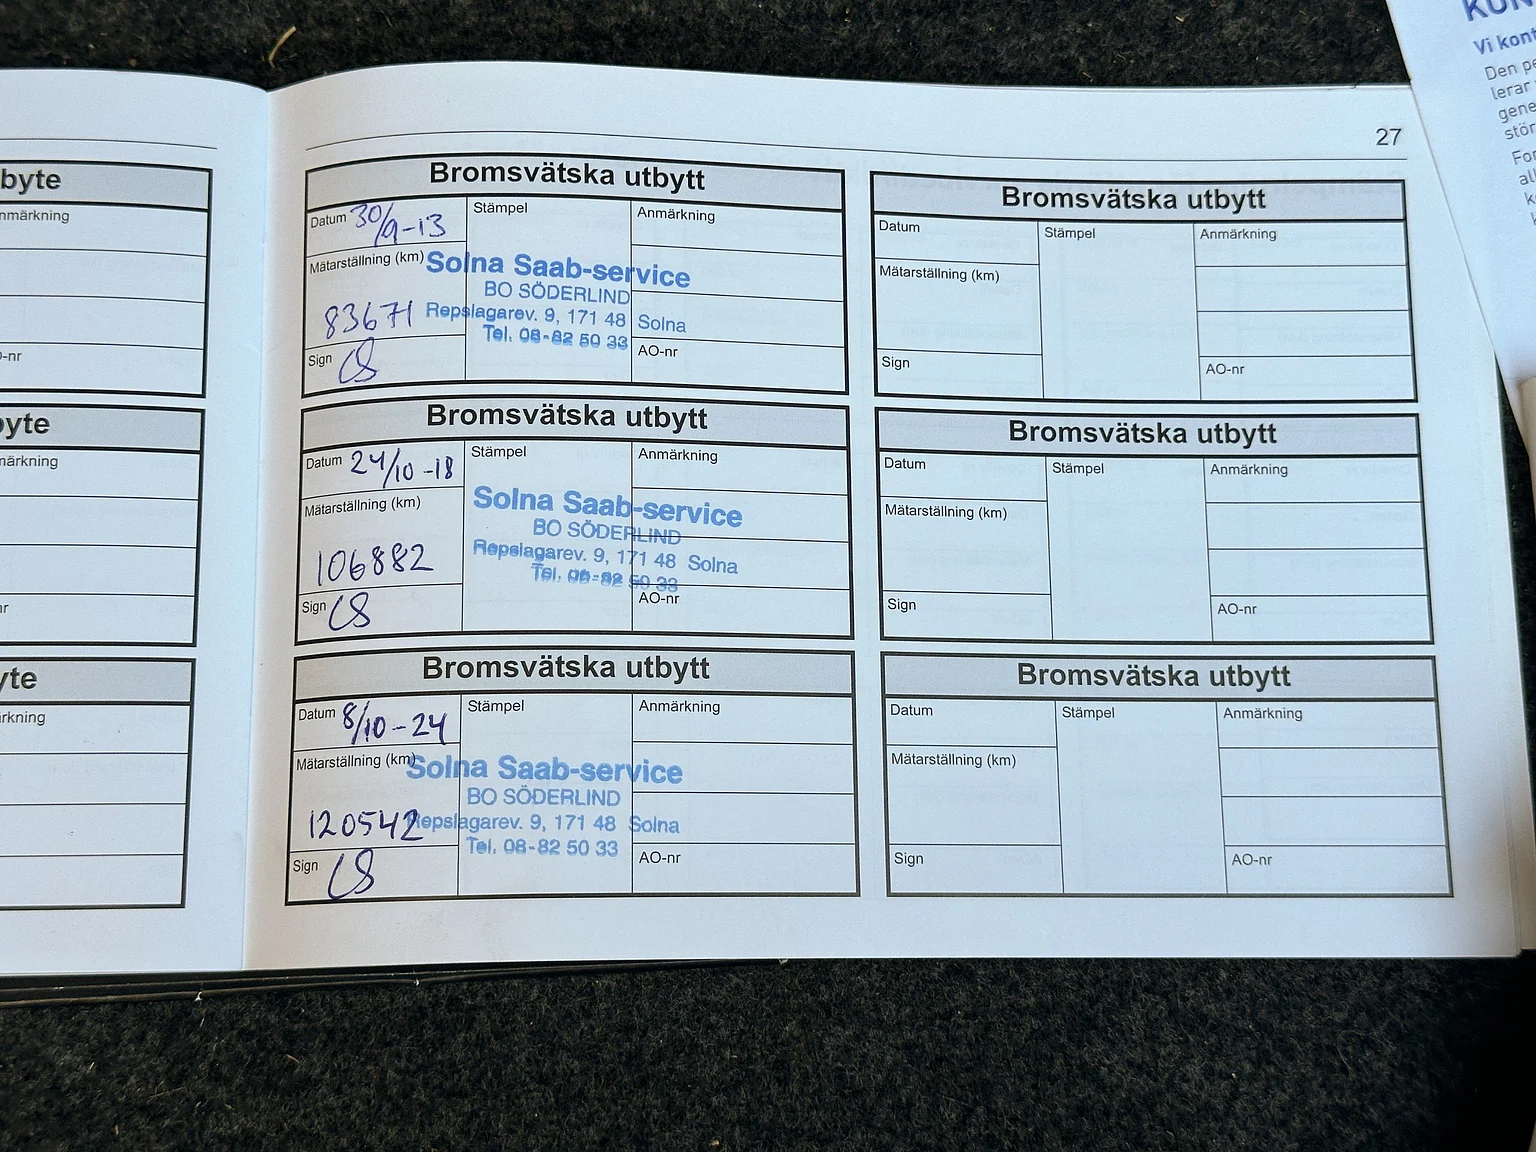 byte
nmärkning
-nr
byte
märkning
nr
yte
rkning
27
Bromsvätska utbytt
Datum 30/9-13
Stämpel
Anmärkning
Mätarställning (km)
Solna Saab-service
BO SÖDERLIND
83671
Repslagarev. 9, 171 48 Solna
Tel. 08-82 50 33
Sign CS
AO-nr
Bromsvätska utbytt
Datum 24/10-18
Stämpel
Anmärkning
Mätarställning (km)
Solna Saab-service
BO SÖDERLIND
106882
Repslagarev. 9, 171 48 Solna
Tel. 08-82 50 33
Sign CS
AO-nr
Bromsvätska utbytt
Datum 8/10-24
Stämpel
Anmärkning
Mätarställning (km)
Solna Saab-service
BO SÖDERLIND
120542
Repslagarev. 9, 171 48 Solna
Tel. 08-82 50 33
Sign CS
AO-nr
Bromsvätska utbytt
Datum
Stämpel
Anmärkning
Mätarställning (km)
Sign
AO-nr
Bromsvätska utbytt
Datum
Stämpel
Anmärkning
Mätarställning (km)
Sign
AO-nr
Bromsvätska utbytt
Datum
Stämpel
Anmärkning
Mätarställning (km)
Sign
AO-nr
KUN
Vi kont
Den pe
lerar
gene
stör
For
all
k